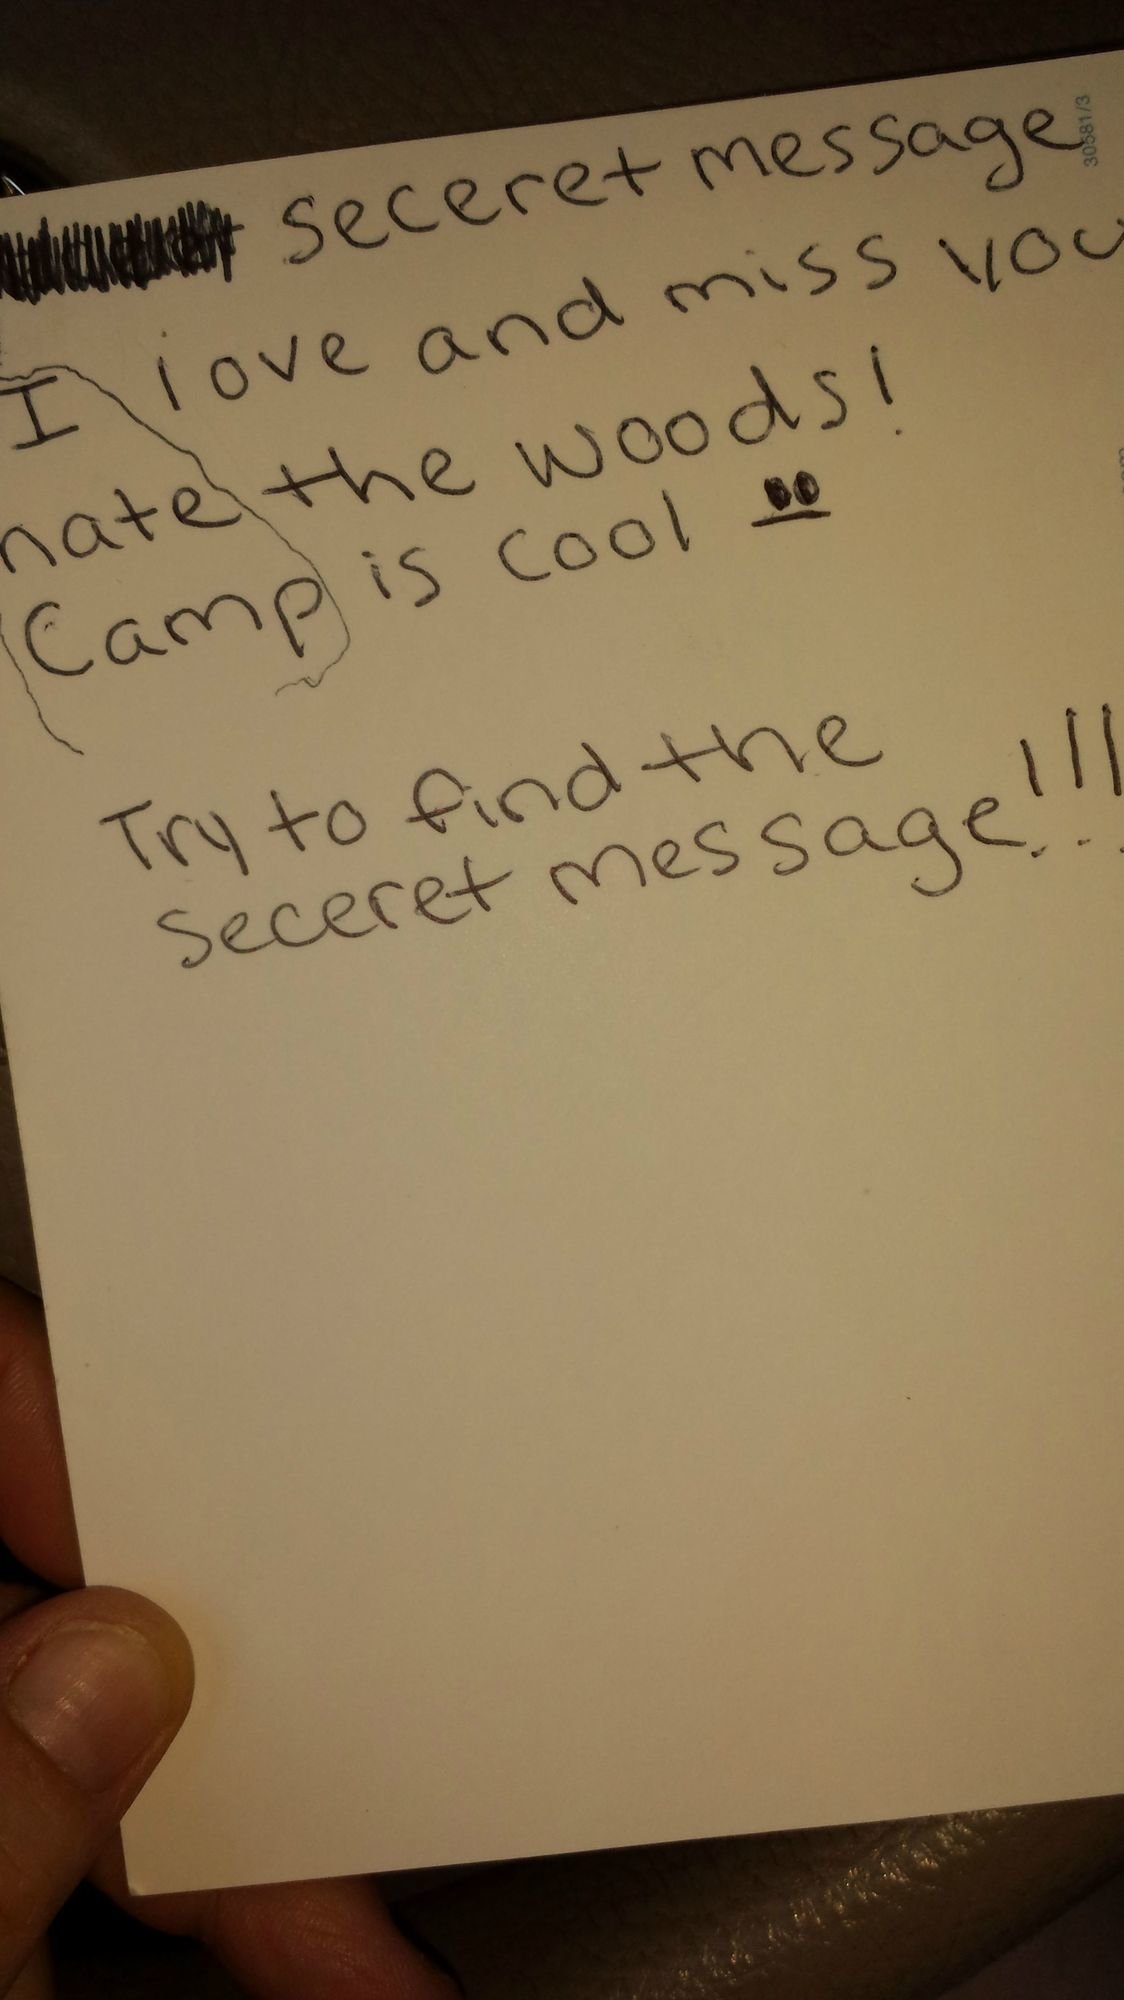 seceret message
I love and miss you
hate the woods!
Camp is cool
Try to find the
seceret message!!!
30581/3